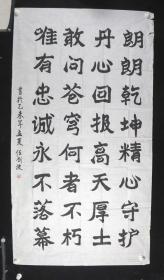 朗朗乾坤精心守护
丹心回报高天厚土
敢问苍穹何者不朽
唯有忠诚永不落幕
書於乙未年孟夏 任剑波